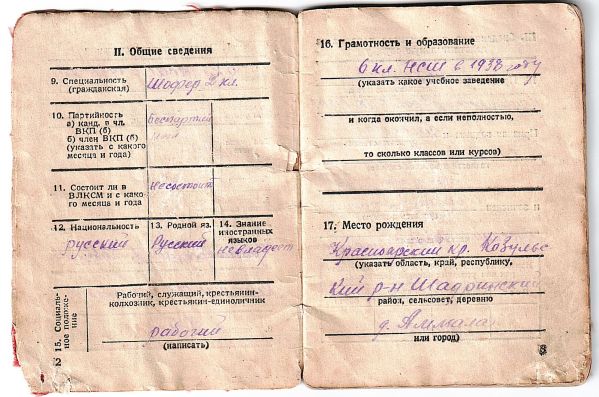 II. Общие сведения
9. Специальность
(гражданская)
Шофер 2 кл.
10. Партийность
а) канд. в чл.
ВКП (б)
б) член ВКП (б)
(указать с какого
месяца и года)
беспартий
ный
11. Состоит ли в
ВЛКСМ и с како-
го месяца и года
несостоит
12. Национальность
русский
13. Родной яз.
Русский
14. Знание
иностранных
языков
невладеет
15. Социаль-
ное положе-
ние
Рабочий, служащий, крестьянин-
колхозник, крестьянин-единоличник
рабочий
(написать)
2
16. Грамотность и образование
6 кл. НСШ в 1938 году
(указать какое учебное заведение
и когда окончил, а если неполностью,
то сколько классов или курсов)
17. Место рождения
Красноярский кр. Ковульс
(указать область, край, республику,
кий р-н Шадринский
район, сельсовет, деревню
д.
или город)
3